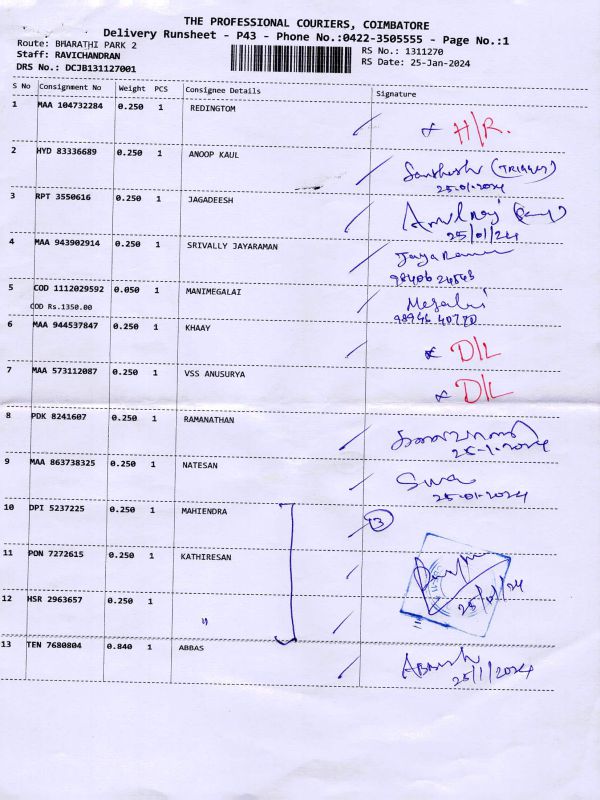 THE PROFESSIONAL COURIERS, COIMBATORE
Delivery Runsheet - P43 - Phone No.:0422-3505555 - Page No.:1
Route: BHARATHI PARK 2
Staff: RAVICHANDRAN
DRS No.: DCJB131127001
RS No.: 1311270
RS Date: 25-Jan-2024
S No Consignment No Weight PCS Consignee Details Signature
1 MAA 104732284 0.250 1 REDINGTOM H/R.
2 HYD 83336689 0.250 1 ANOOP KAUL Santhosh (TRIGGER)
25.01.2024
3 RPT 3550616 0.250 1 JAGADEESH
25/01/24
4 MAA 943902914 0.250 1 SRIVALLY JAYARAMAN Jayaraman
98406 24543
5 COD 1112029592 0.050 1 MANIMEGALAI Megalai
COD Rs.1350.00
6 MAA 944537847 0.250 1 KHAAY D/L
7 MAA 573112087 0.250 1 VSS ANUSURYA D/L
8 PDK 8241607 0.250 1 RAMANATHAN
25-1-2024
9 MAA 863738325 0.250 1 NATESAN
25-01-2024
10 DPI 5237225 0.250 1 MAHIENDRA 3
11 PON 7272615 0.250 1 KATHIRESAN
12 HSR 2963657 0.250 1 "
25/01/24
13 TEN 7680804 0.840 1 ABBAS
25/1/2024